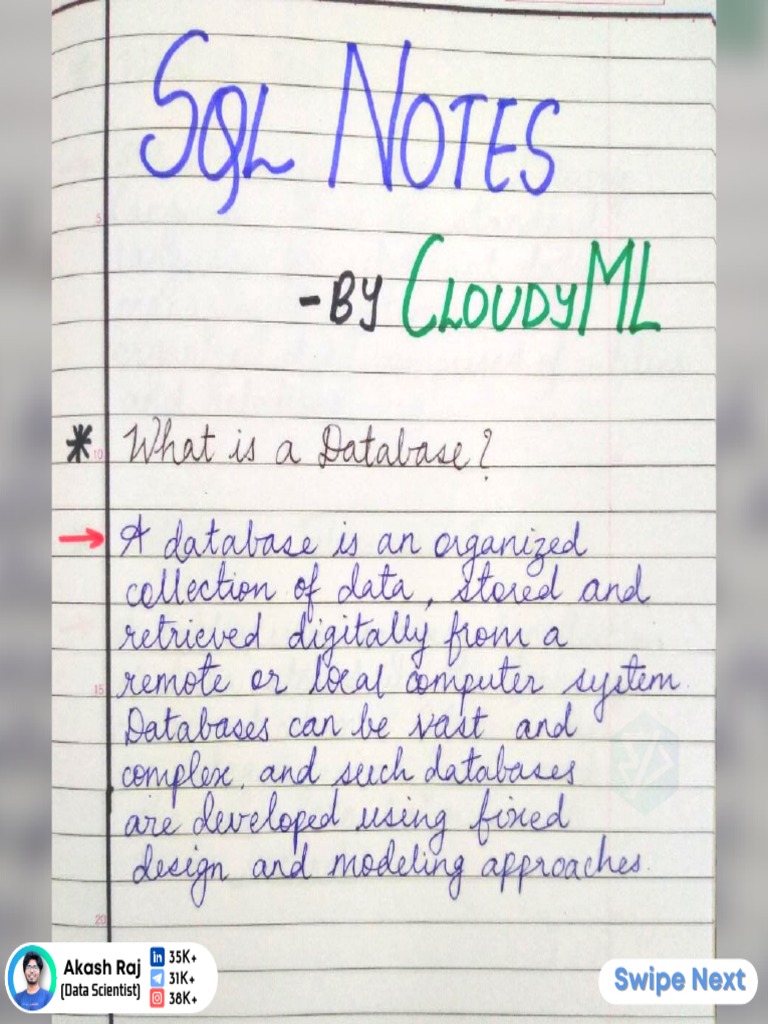 SQL NOTES
- BY CLOUDYML
* What is a Database?
→ A database is an organized
collection of data, stored and
retrieved digitally from a
remote or local computer system.
Databases can be vast and
complex, and such databases
are developed using fixed
design and modeling approaches.
5
10
15
20
Akash Raj
(Data Scientist)
in 35K+
31K+
38K+
Swipe Next